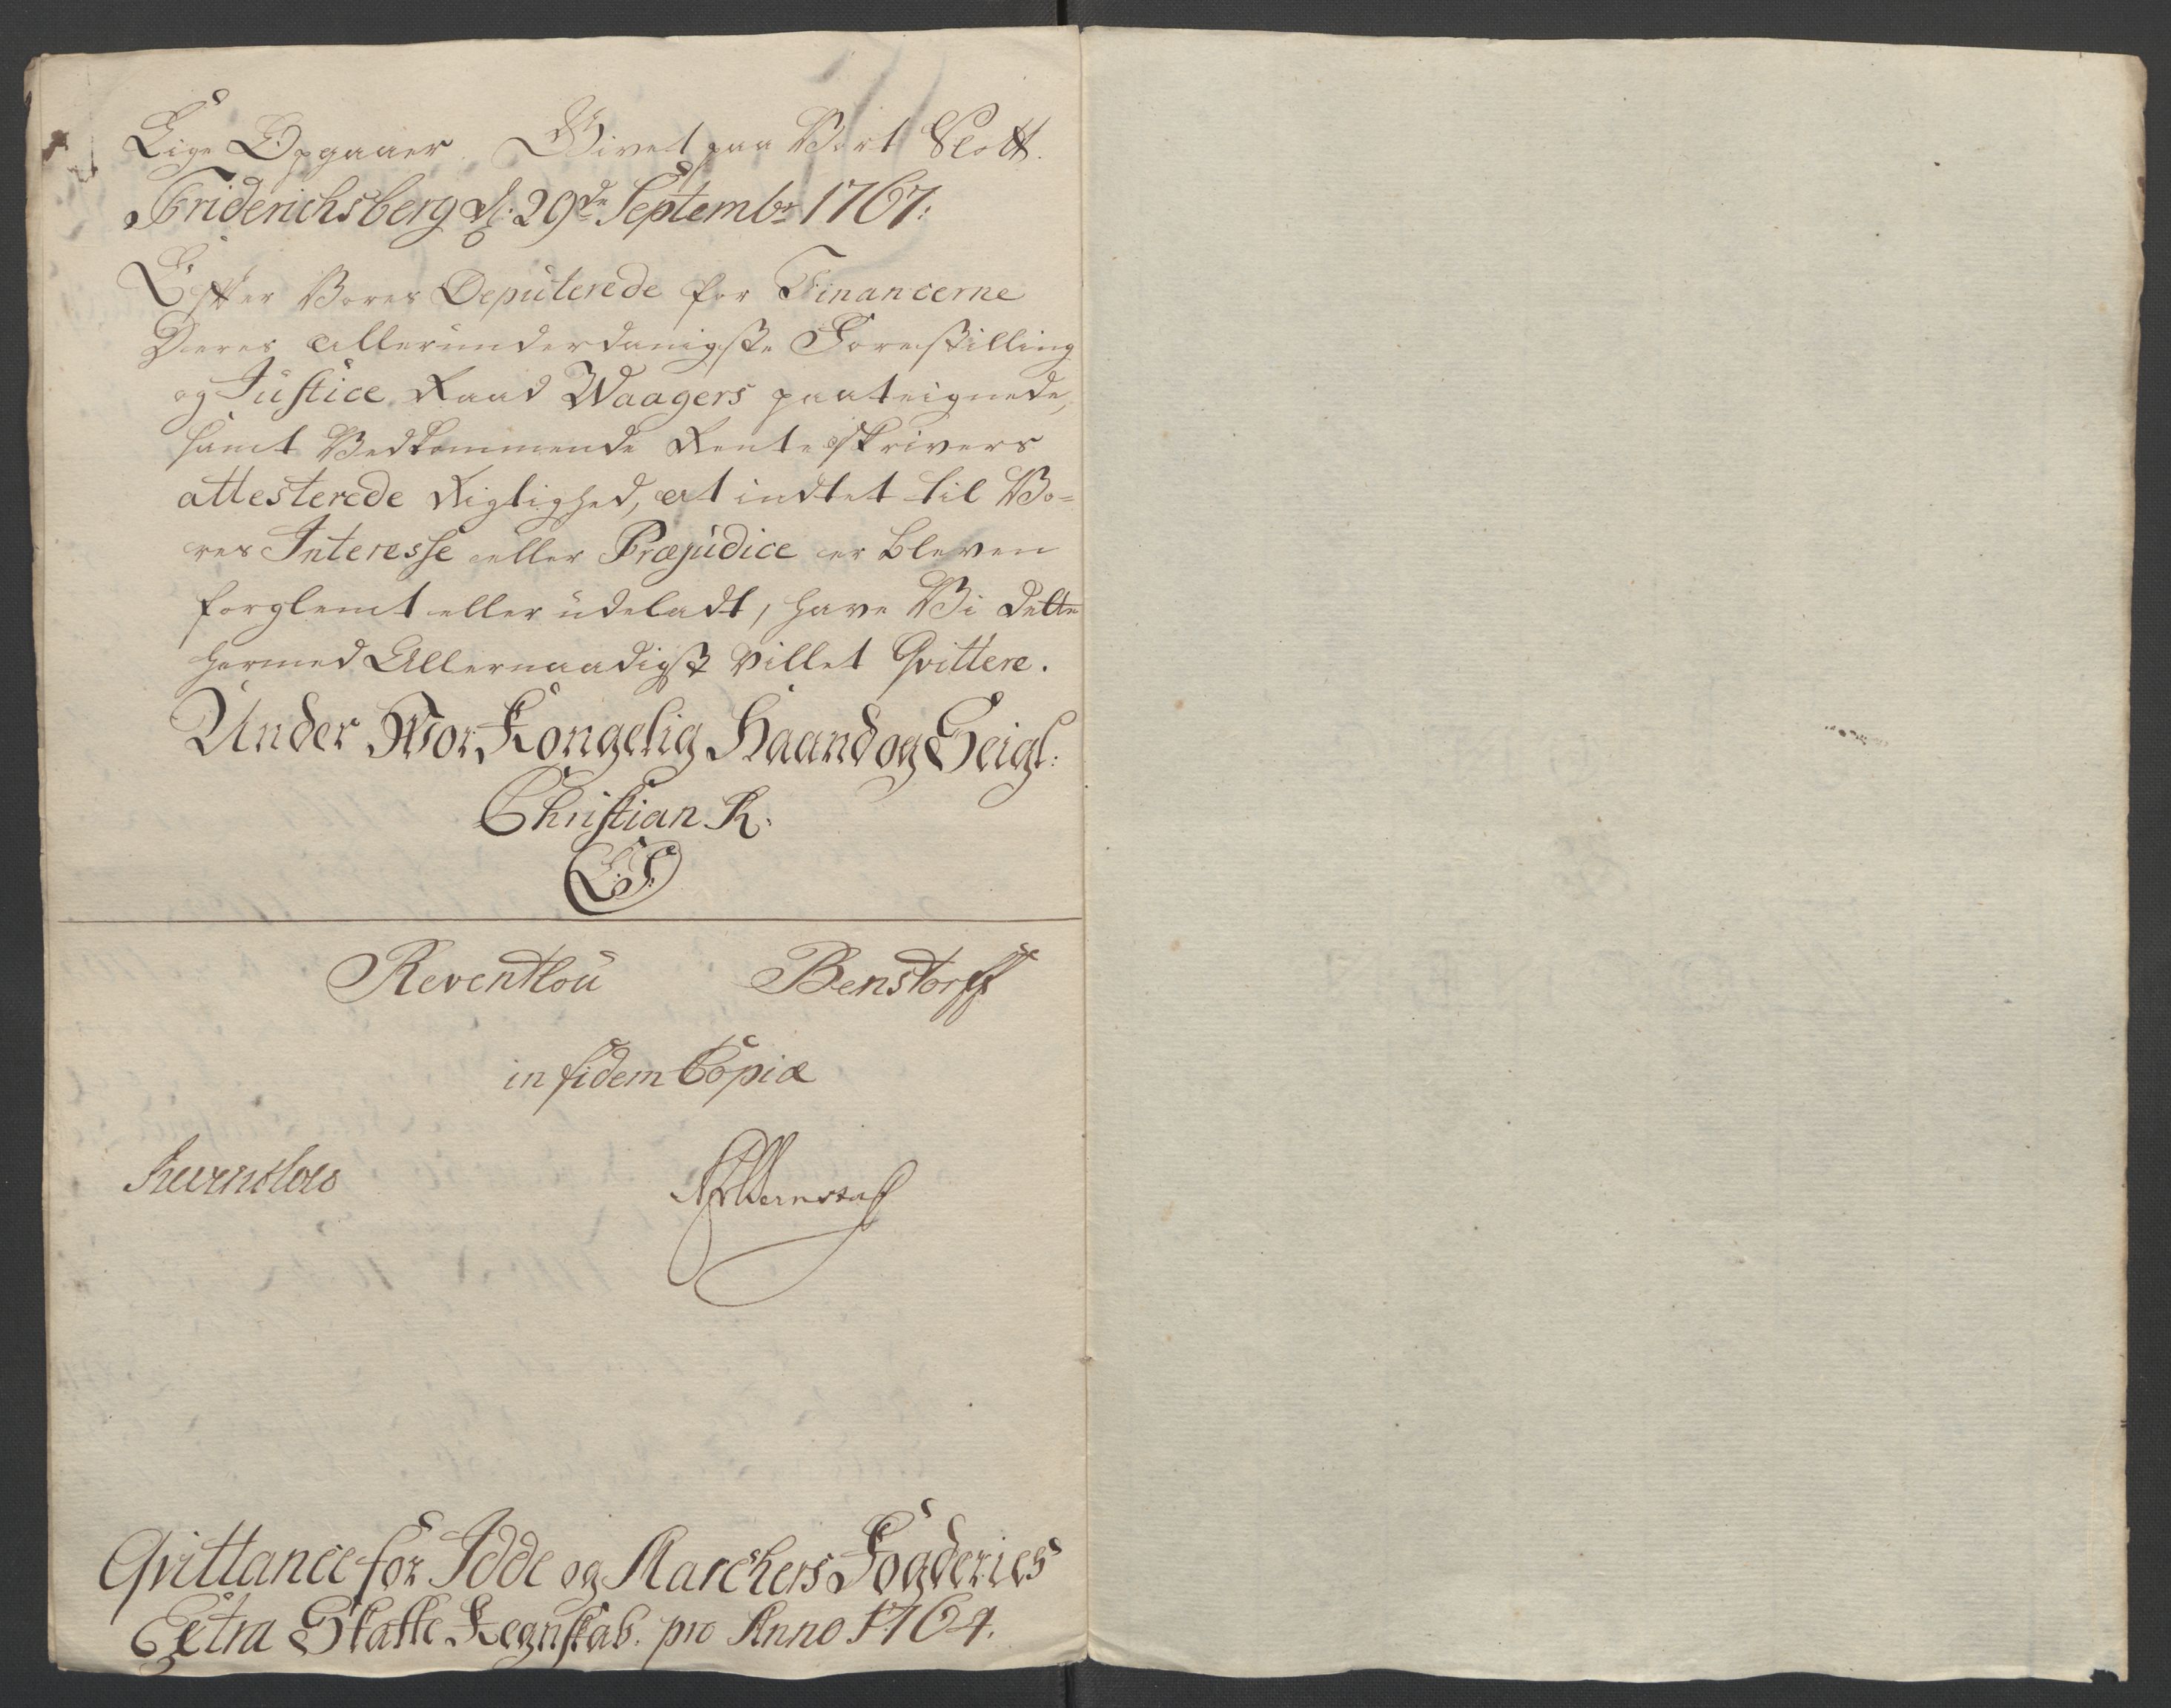 Lige Opgaaer. Givet paa Vort Slott.
Friderichsberg d: 29de Septembr 1767:
Efter Vores Deputerede for Financerne
Deres allerunderdanigste Forestilling
og Justice Raad Waagers paateignede,
samt Vedkommende Renteskrivers
attesterede Rigtighed, at indtet til Vo=
res Interesse eller Præjudice er bleven
forglemt eller udeladt, have Vi dette
hermed Allernaadigst villet Qvittere.
Under Vor Kongelig Haand og Seigl:
Christian R:
L.S.
Reventlou Benstorff
in fidem Copiæ
Reventlow
Qvittance for Idde og Marchers Fogderies
Extra Skatte Regnskab. pro Anno 1764.